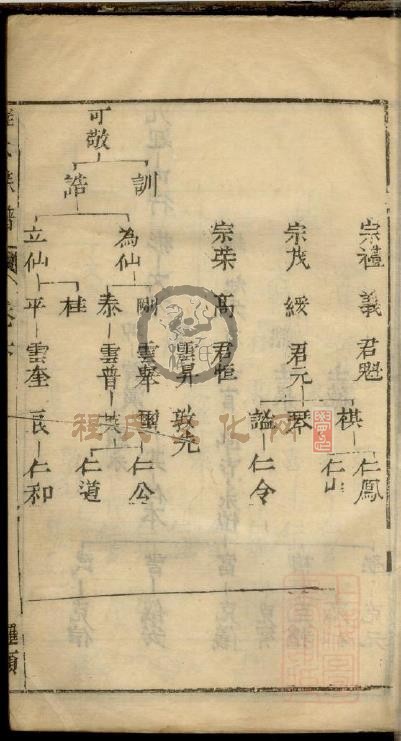 宗禮 義 君魁 棋 仁鳳
仁山
宗茂 綬 君元 琴
謐 仁令
宗荣 高 君恒
雲昇 敦先
可敬
訓
誥
為仙
剛 雲舉 仁公
泰 雲普 英 仁道
立仙
桂
平 雲奎 良 仁和
程氏文化网